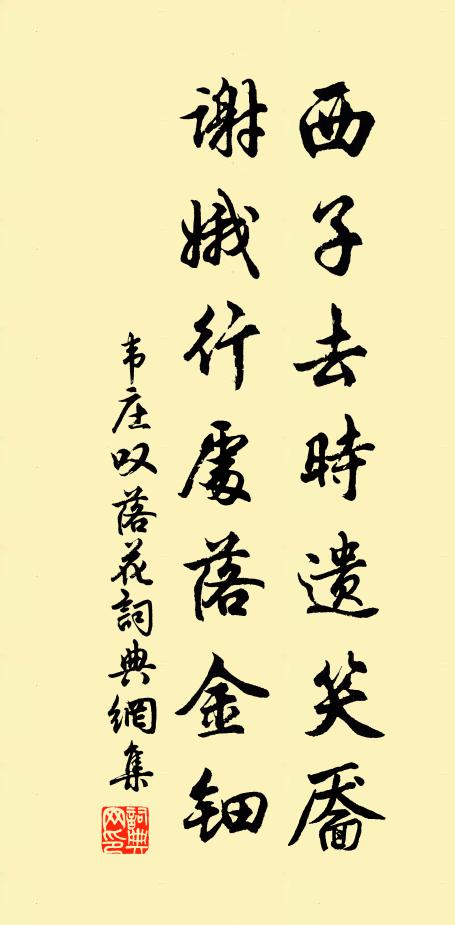 西子去時遺笑靨
謝娥行處落金鈿
韦庄叹落花詞典網集
詞典网印